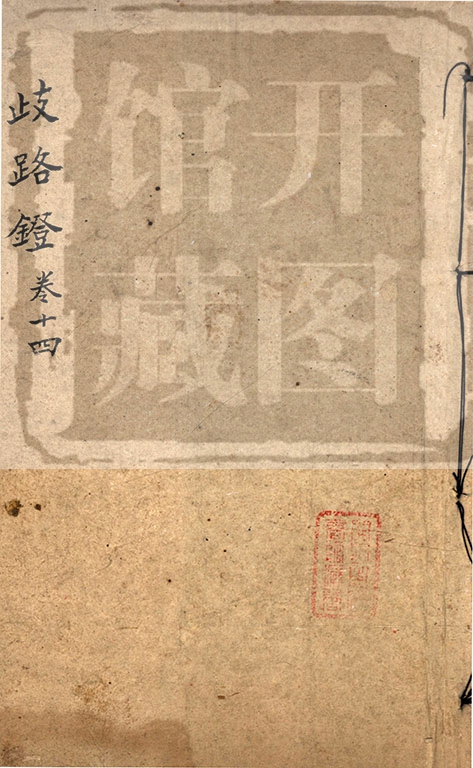 歧路鐙 卷十四
开图
馆藏